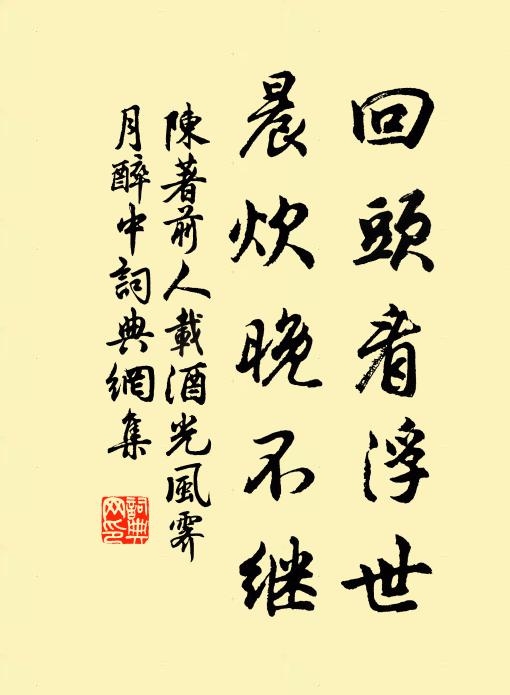 回頭看浮世
晨炊晚不继
陳著前人載酒光風霽
月醉中詞典網集
詞典網印